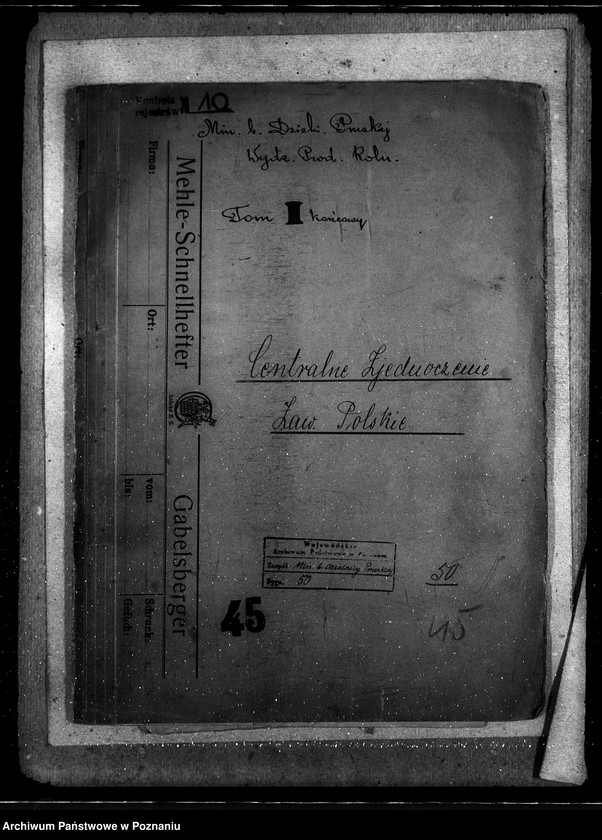 Kontrola
rejestrów N 10
Min. b. Dzieln. Pruskiej
Wydz. Prod. Roln.
Tom I końcowy
Centralne Zjednoczenie
Zaw. Polskie
Mehle-Schnellhefter
Gabelsberger
Firma:
Ort:
vom:
bis:
Schrank:
Gefach:
Wojewódzkie
Archiwum Państwowe w Poznaniu
Zespół Min. b. Dzielnicy Pruskiej
Sygn. 50
50
45
45
Archiwum Państwowe w Poznaniu